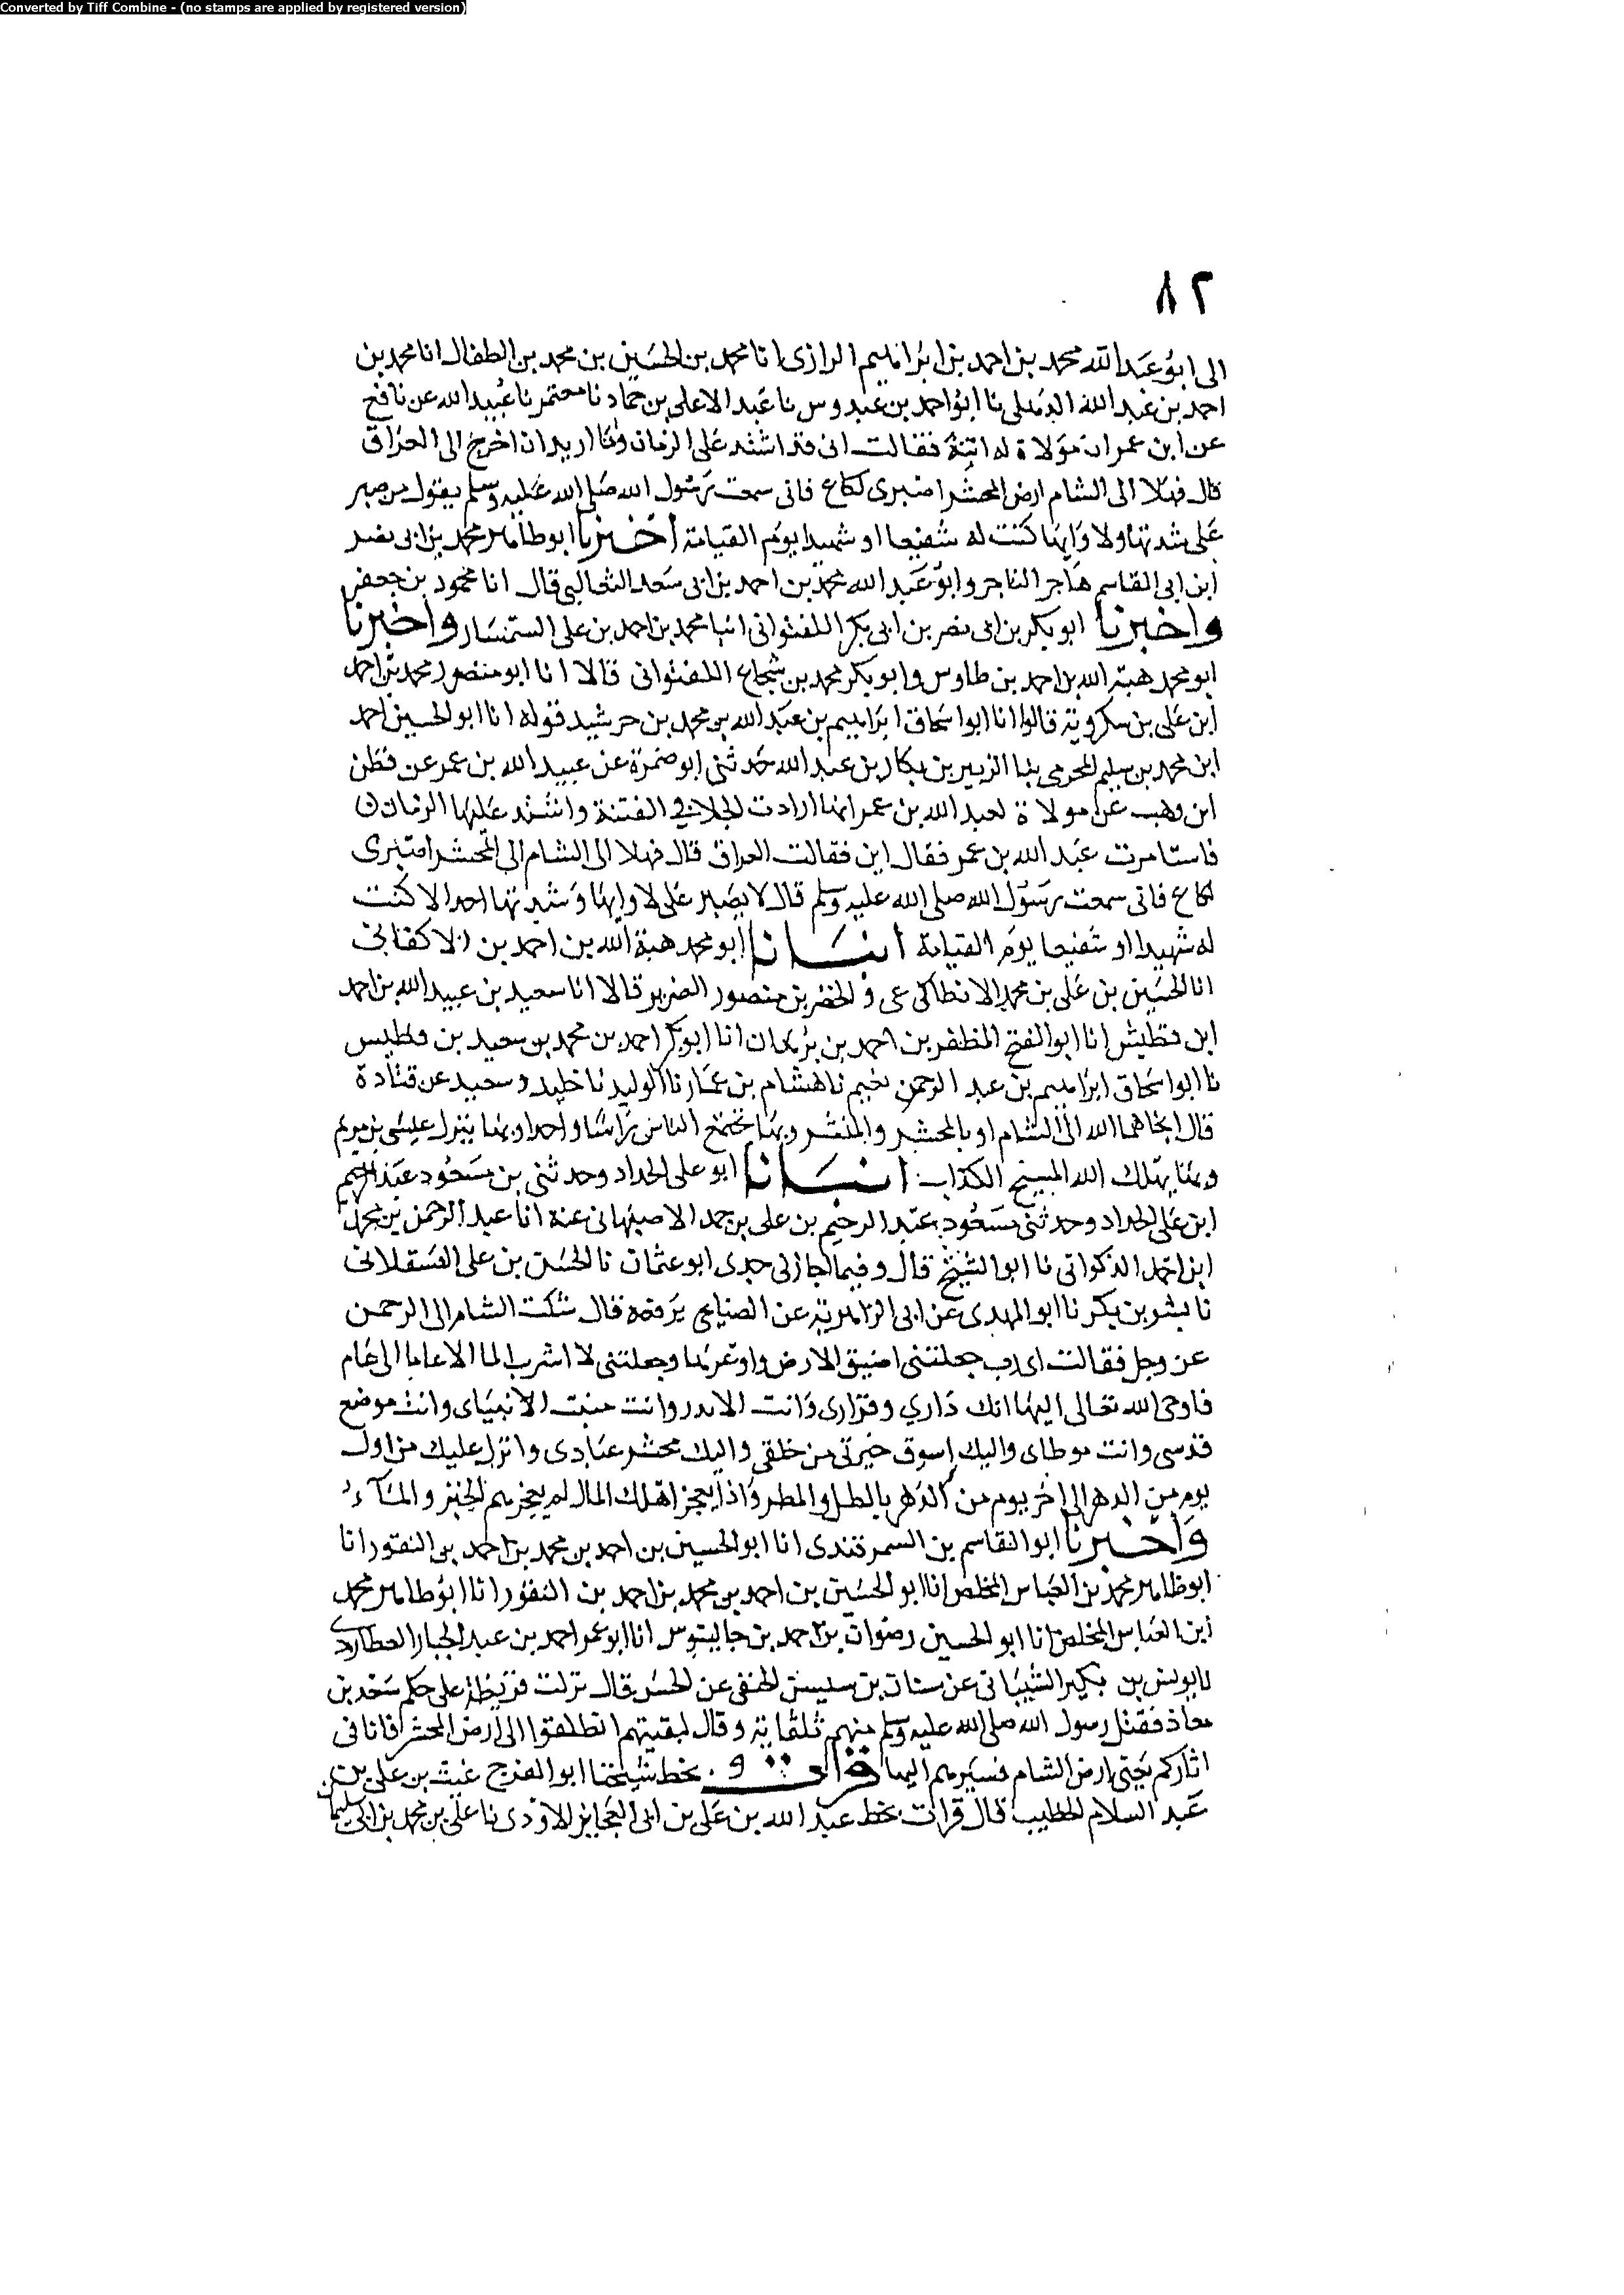 Converted by Tiff Combine - (no stamps are applied by registered version)
٨٢
الى ابو عبد الله محمد بن احمد بن ابراهيم الرازى انا محمد بن الحسين بن محمد بن الطفال انا محمد بن
احمد بن عبد الله الذهلى نا ابو احمد بن عبدوس نا عبد الاعلى بن حماد نا معتمر نا عبيد الله عن نافع
عن ابن عمر ان مولاة له اتته فقالت انى قد اشتد على الزمان وانا اريد ان اخرج الى العراق
قال فهلا الى الشام ارض المحشر اصبرى لكاع فانى سمعت رسول الله صلى الله عليه وسلم يقول من صبر
على شدتها ولاوايها كنت له شفيعا او شهيدا يوم القيامة اخبرنا ابو طاهر محمد بن ابى نصر
ابن ابى القاسم هاجر التاجر وابو عبد الله محمد بن احمد بن ابى سعد الثعالبى قال انا محمود بن جعفر
واخبرنا ابو بكر بن ابى نصر بن ابى بكر اللفتوانى انبا محمد بن احمد بن على السمسار واخبرنا
ابو محمد هبة الله بن احمد بن طاوس وابو بكر محمد بن شجاع اللفتوانى قالا انا ابو منصور محمد بن احمد
ابن على بن سكرويه قالوا انا ابو اسحاق ابراهيم بن عبد الله بن محمد بن خرشيد قوله انا ابو الحسين احمد
ابن محمد بن سليم المخرمى بنا الزبير بن بكار بن عبد الله حدثنى ابو ضمرة عن عبيد الله بن عمر عن قطن
ابن وهب عن مولاة لعبد الله بن عمر انها ارادت الجلا فى الفتنة واشتد عليها الزمان
فاستامرت عبد الله بن عمر فقال اين فقالت العراق قال فهلا الى الشام الى المحشر اصبرى
لكاع فانى سمعت رسول الله صلى الله عليه وسلم قال لا يصبر على لاوايها وشدتها احد الا كنت
له شهيدا او شفيعا يوم القيامة انبانا ابو محمد هبة الله بن احمد بن الاكفانى
انا الحسين بن على بن محمد الانطاكى و الخضر بن منصور الضرير قالا انا سعيد بن عبيد الله بن احمد
ابن فطيش انا ابو الفتح المظفر بن احمد بن برهان انا ابو بكر احمد بن محمد بن سعيد بن فطيس
نا ابو اسحاق ابراهيم بن عبد الرحمن نا هشام بن عمار نا الوليد نا خليد و سعيد عن قتادة
قال انجاهما الله الى الشام او بالمحشر والمنشر وبها يجتمع الناس راسا واحدا وبها ينزل عيسى بن مريم
وبها يهلك الله المسيح الكذاب انبانا ابو على الحداد وحدثنى بن مسعود عبد الرحيم
ابن على الحداد وحدثنى مسعود عبد الرحيم بن على بن حمد الاصبهانى عنه انا عبد الرحمن بن محمد
ابن احمد الذكوانى نا ابو الشيخ قال وفيما اجاز لى جدى ابو عثمان نا الحسن بن على العسقلانى
نا بشر بن بكر نا ابو المهدى عن ابى الزاهرية عن الصنابحى يرفعه قال شكت الشام الى الرحمن
عز وجل فقالت اى رب جعلتنى اضيق الارض واوعرها وجعلتنى لا اشرب الما الا عاما الى عام
فاوحى الله تعالى اليها انك دارى وقرارى وانت الاندر وانت منبت الانبياى وانت موضع
قدسى وانت موطاى واليك اسوق خيرتى من خلقى واليك محشر عبادى وانزل عليك من اول
يوم من الدهر الى اخر يوم من الدهر بالطل والمطر واذا يعجز اهلك المال لم يعجزهم الخبز والمآء
واخبرنا ابو القاسم بن السمرقندى انا ابو الحسين بن احمد بن محمد بن احمد بن النقور انا
ابو طاهر محمد بن العباس المخلص انا ابو الحسين بن احمد بن محمد بن احمد بن النقور انا ابو طاهر محمد
ابن العباس المخلص انا ابو الحسين رضوان بن احمد بن جالينوس انا ابو عمر احمد بن عبد الجبار العطاردى
نا يونس بن بكير الشيبانى عن سنان بن سيسن الحنفى عن الحسن قال نزلت قريظة على حكم سعد بن
معاذ فقتل رسول الله صلى الله عليه وسلم منهم ثلثماية وقال لبقيتهم انطلقوا الى ارض المحشر فانا فى
اثاركم يعنى ارض الشام فسيرهم اليها قرات بخط شيخنا ابو الفرج غيث بن على بن
عبد السلام الخطيب قال قرات بخط عبد الله بن على بن ابى العجايز الازدى نا على بن محمد بن ابى سليمان